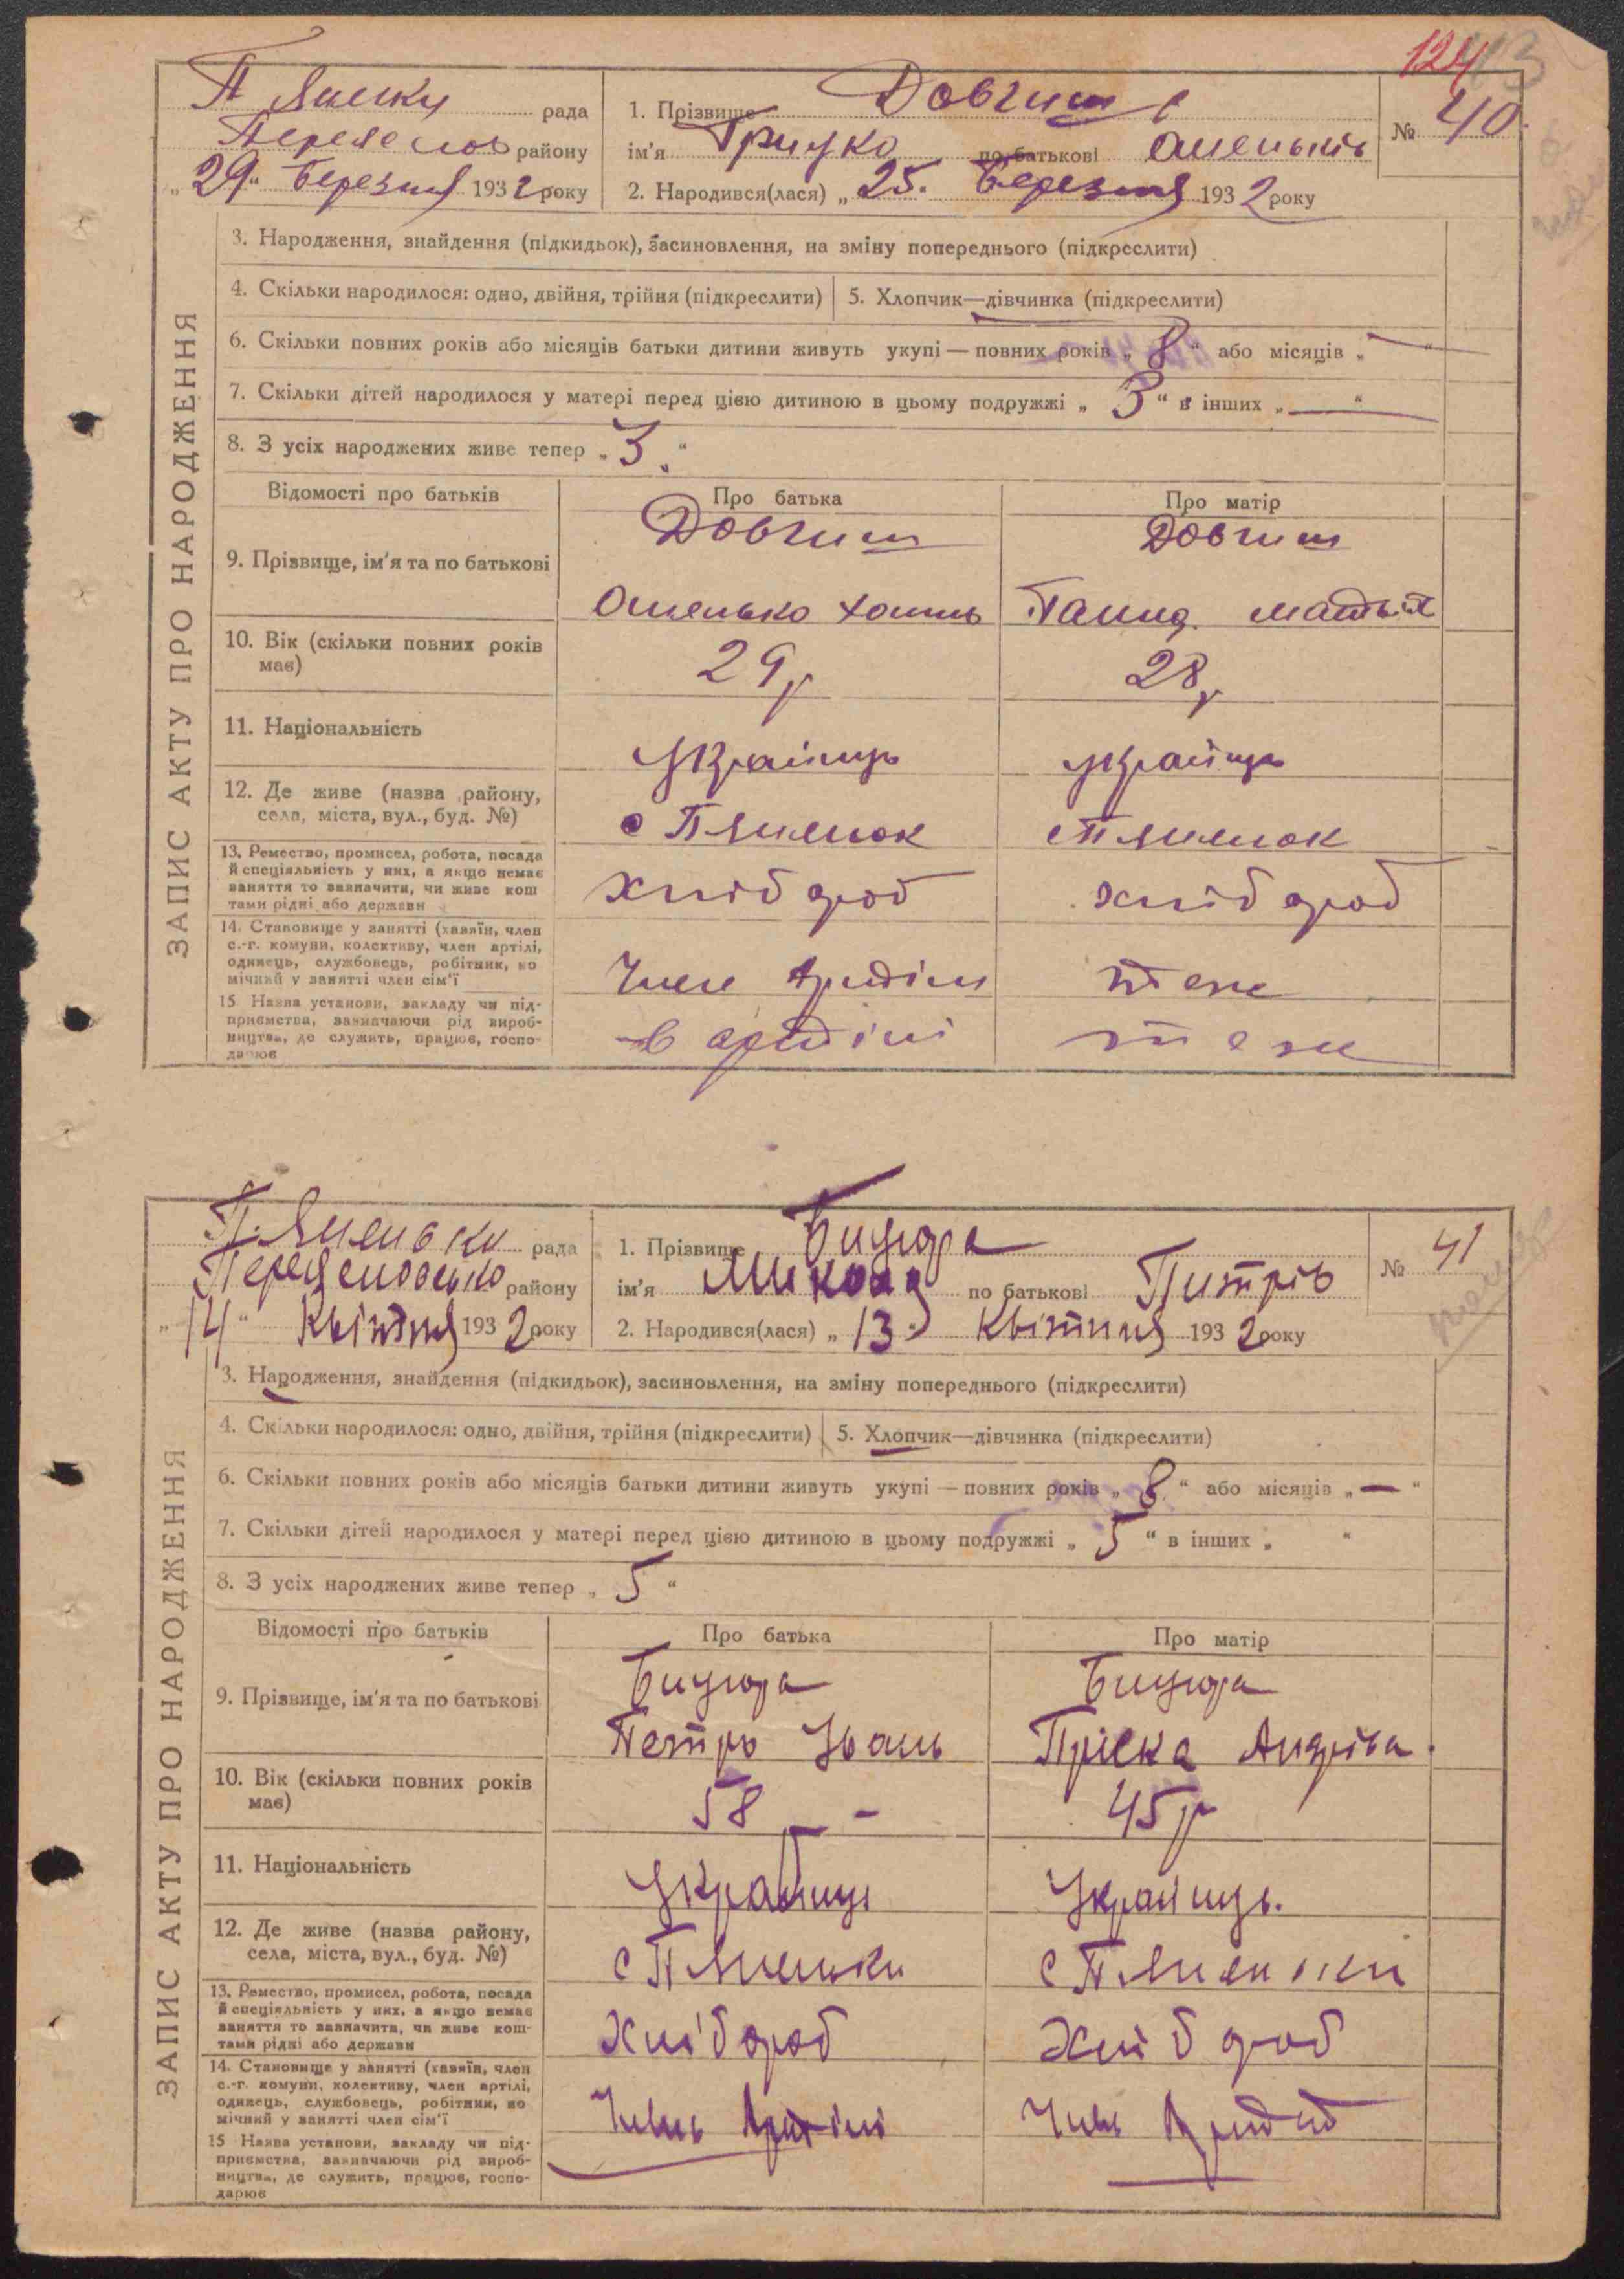 124
П Ляшку рада
Переяслов району
„29“ Березня 1932 року
1. Прізвище Довгиш
ім'я Грицко по батькові Омельків
№ 40
2. Народився(лася) „25. Березня 1932 року
ЗАПИС АКТУ ПРО НАРОДЖЕННЯ
3. Народження, знайдення (підкидьок), засиновлення, на зміну попереднього (підкреслити)
4. Скільки народилося: одно, двійня, трійня (підкреслити) 5. Хлопчик—дівчинка (підкреслити)
6. Скільки повних років або місяців батьки дитини живуть укупі — повних років „ 8 “ або місяців „ — “
7. Скільки дітей народилося у матері перед цією дитиною в цьому подружжі „ 3 “ в інших „ — “
8. З усіх народжених живе тепер „ 3 “
Відомості про батьків Про батька Про матір
9. Прізвище, ім'я та по батькові
Довгиш Довгиш
Омелько Хомиь
10. Вік (скільки повних років має)
29 р 28 р
11. Національність
Українць українць
12. Де живе (назва району, села, міста, вул., буд. №)
с
13. Ремество, промисел, робота, посада й спеціяльність у них, а якщо немає заняття то зазначити, чи живе коштами рідні або держави
Хлібороб хлібороб
14. Становище у занятті (хазяїн, член с.-г. комуни, колективу, член артілі, одинець, службовець, робітник, помічний у занятті член сім'ї
Член Артіли теж
15 Назва установи, закладу чи підприємства, зазначаючи рід виробництва, де служить, працює, господарює
в артілі теж
рада
району
„14“ Квітня 1932 року
1. Прізвище
ім'я Микола по батькові Питрів
№ 41
2. Народився(лася) „13“ Квітня 1932 року
ЗАПИС АКТУ ПРО НАРОДЖЕННЯ
3. Народження, знайдення (підкидьок), засиновлення, на зміну попереднього (підкреслити)
4. Скільки народилося: одно, двійня, трійня (підкреслити) 5. Хлопчик—дівчинка (підкреслити)
6. Скільки повних років або місяців батьки дитини живуть укупі — повних років „ 8 “ або місяців „ — “
7. Скільки дітей народилося у матері перед цією дитиною в цьому подружжі „ 5 “ в інших „ “
8. З усіх народжених живе тепер „ 5 “
Відомості про батьків Про батька Про матір
9. Прізвище, ім'я та по батькові
Петро Івань Пріска Андріва
10. Вік (скільки повних років має)
58 — - 45 р
11. Національність
Українць Українць.
12. Де живе (назва району, села, міста, вул., буд. №)
с с
13. Ремество, промисел, робота, посада й спеціяльність у них, а якщо немає заняття то зазначити, чи живе коштами рідні або держави
Хлібороб Хлібороб
14. Становище у занятті (хазяїн, член с.-г. комуни, колективу, член артілі, одинець, службовець, робітник, помічний у занятті член сім'ї
Члень Артілі Член
15 Назва установи, закладу чи підприємства, зазначаючи рід виробництва, де служить, працює, господарює